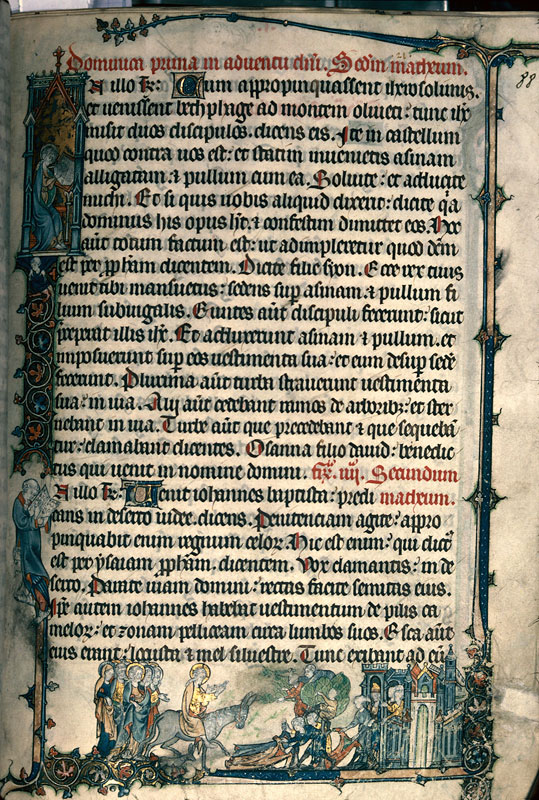 Dominica prima in adventu dñi. Scdm matheum.
88
In illo t̄r: Cum appropinquassent iherosolimis.
et venissent bethphage ad montem oliveti: tunc ihc
misit duos discipulos. dicens eis. Ite in castellum
quod contra vos est: et statim invenietis asinam
alligatam: ⁊ pullum cum ea. Solvite: et adducite
michi. Et si quis vobis aliquid dixerit: dicite q̄a
dominus his opus h̄t. ⁊ confestim dimittet eos. Hoc
aūt totum factum est: ut adimpleretur quod dc̄m
est per ꝓpħam dicentem. Dicite filie syon. Ecce rex tuus
venit tibi mansuetus: sedens sup̄ asinam. ⁊ pullum fi
lium subiugalis. Euntes aūt discipuli fecerunt: sicut
precepit illis ihc. Et adduxerunt asinam ⁊ pullum. et
imposuerunt sup̄ eos vestimenta sua: et eum desup̄ sedē
fecerunt. Plurima aūt turba straverunt vestimenta
sua: in via. Alij aūt cedebant ramos de arboribꝫ: et ster
nebant in via. Turbe aūt que precedebant ⁊ que sequebā
tur: clamabant dicentes. Osanna filio david: benedic
tus qui venit in nomine domini. fr̄. iiij. Secundium
In illo t̄r: Venit iohannes baptista: predi matheum.
cans in deserto iudee. dicens. Penitentiam agite: appro
pinquabit enim regnum celoꝝ. Hic est enim: qui dictꝰ
est per ysaiam ꝓpħam. dicentem. Vox clamantis: in de
serto. Parate viam domini: rectas facite semitas eius.
Ipē autem iohannes habebat vestimentum de pilis ca
meloꝝ: et zonam pelliceam circa lumbos suos. Esca aūt
eius erant: locusta ⁊ mel silvestre. Tunc exibant ad eū